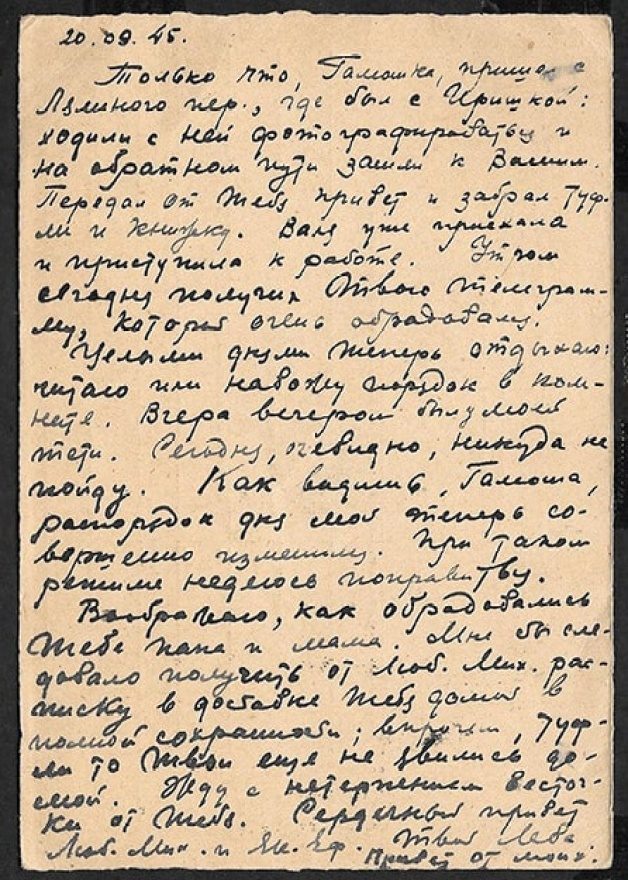 20.09.45.
Только что, Гамошка, пришел с
Лялиного пер., где был с Иришкой:
ходили с ней фотографироваться и
на обратном пути зашли к Вашим.
Передал от Тебя привет и забрал туф-
ли и книжку. Валя уже приехала
и приступила к работе. Утром
сегодня получил Твою телеграм-
му, которой очень обрадовался.
Целыми днями теперь отдыхаю:
читаю или навожу порядок в ком-
нате. Вчера вечером был у моей
тети. Сегодня, очевидно, никуда не
пойду. Как видишь, Гамоша,
распорядок дня мой теперь со-
вершенно изменился. При таком
режиме надеюсь поправиться.
Воображаю, как обрадовались
Тебе папа и мама. Мне бы сле-
довало получить от Люб. Мих. рас-
писку в доставке Тебя домой в
полной сохранности; впрочем, туф-
ли то Твои еще не явились до-
мой. Жду с нетерпением весточ-
ки от Тебя. Сердечный привет
Люб. Мих. и Ен. Еф. Твой Лева
Привет от моих.